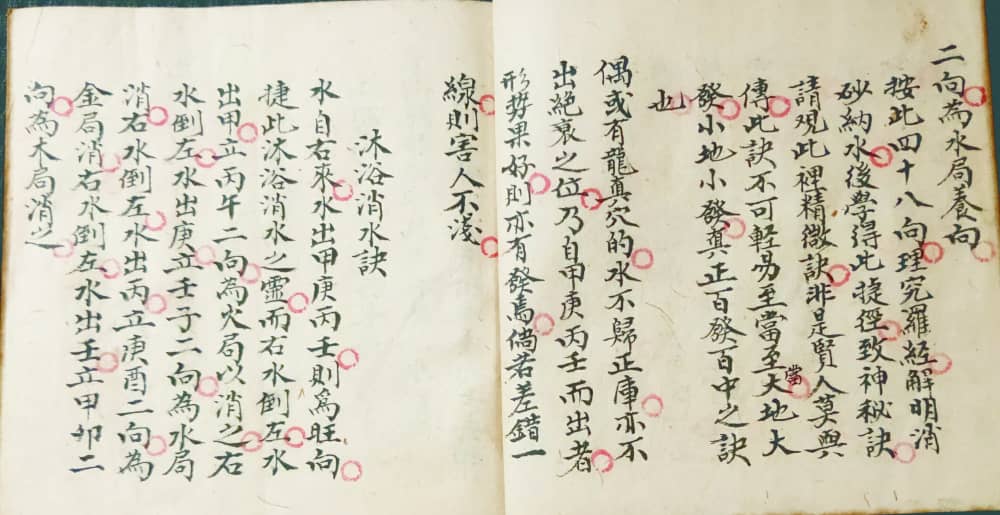 二向為水局養向
按此四十八向理究羅經解明消
砂納水後學得此捷徑致神秘訣
請覌此裡精微訣非是賢人莫與
傳此訣不可輕易至當至大地大
當
發小地小發真正百發百中之訣
也
偶或有龍真穴的水不歸正庫亦不
出絶衰之位乃自甲庚丙壬而出者
形势果好則亦有發焉倘若差錯一
線則害人不淺
沐浴消水訣
水自右來水出甲庚丙壬則為旺向
捷此沐浴消水之靈而右水倒左水
出甲立丙午二向為火局以消之右
水倒左水出庚立壬子二向為水局
消右水倒左水出丙立庚酉二向為
金局消右水倒左水出壬立甲卯二
向為木局消之